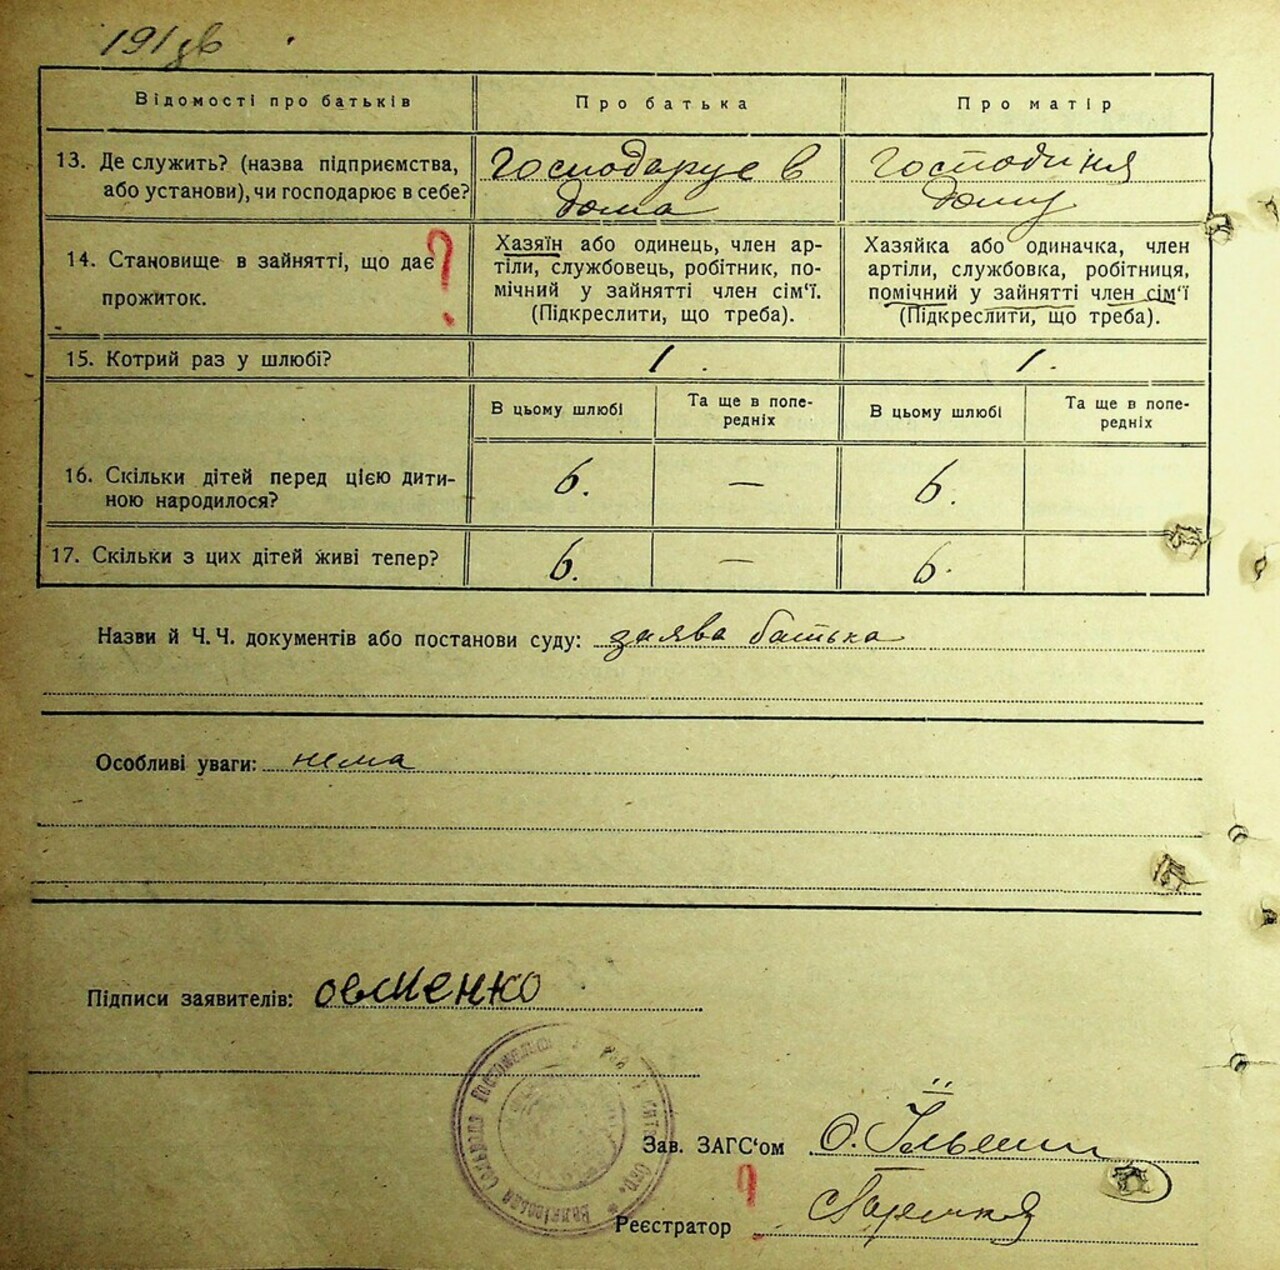 191 зв
Відомості про батьків
Про батька
Про матір
13. Де служить? (назва підприємства, або установи), чи господарює в себе?
господарує в
дома
господиня
дому
14. Становище в зайнятті, що дає прожиток.
?
Хазяїн або одинець, член ар-
тіли, службовець, робітник, по-
мічний у зайнятті член сім‘ї.
(Підкреслити, що треба).
Хазяйка або одиначка, член
артіли, службовка, робітниця,
помічний у зайнятті член сім‘ї
(Підкреслити, що треба).
15. Котрий раз у шлюбі?
1.
1.
В цьому шлюбі
Та ще в попе-
редніх
В цьому шлюбі
Та ще в попе-
редніх
16. Скільки дітей перед цією дити-
ною народилося?
6.
—
6.
17. Скільки з цих дітей живі тепер?
6.
—
6.
Назви й Ч. Ч. документів або постанови суду: заява батька
Особливі уваги: нема
Підписи заявителів: овсиенко
Зав. ЗАГС‘ом
?
Реєстратор